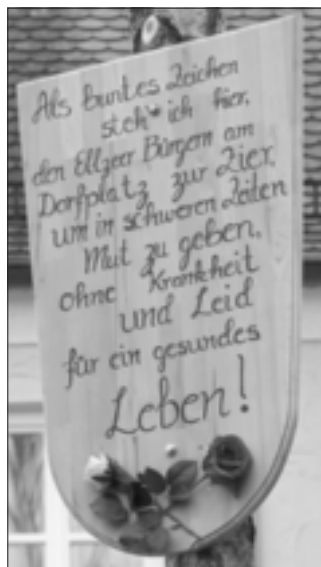 Als buntes Zeichen
steh' ich hier,
den Ellzeer Bürgern am
Dorfplatz zur Zier,
um in schweren Zeiten
Mut zu geben,
ohne Krankheit
und Leid
für ein gesundes
Leben!